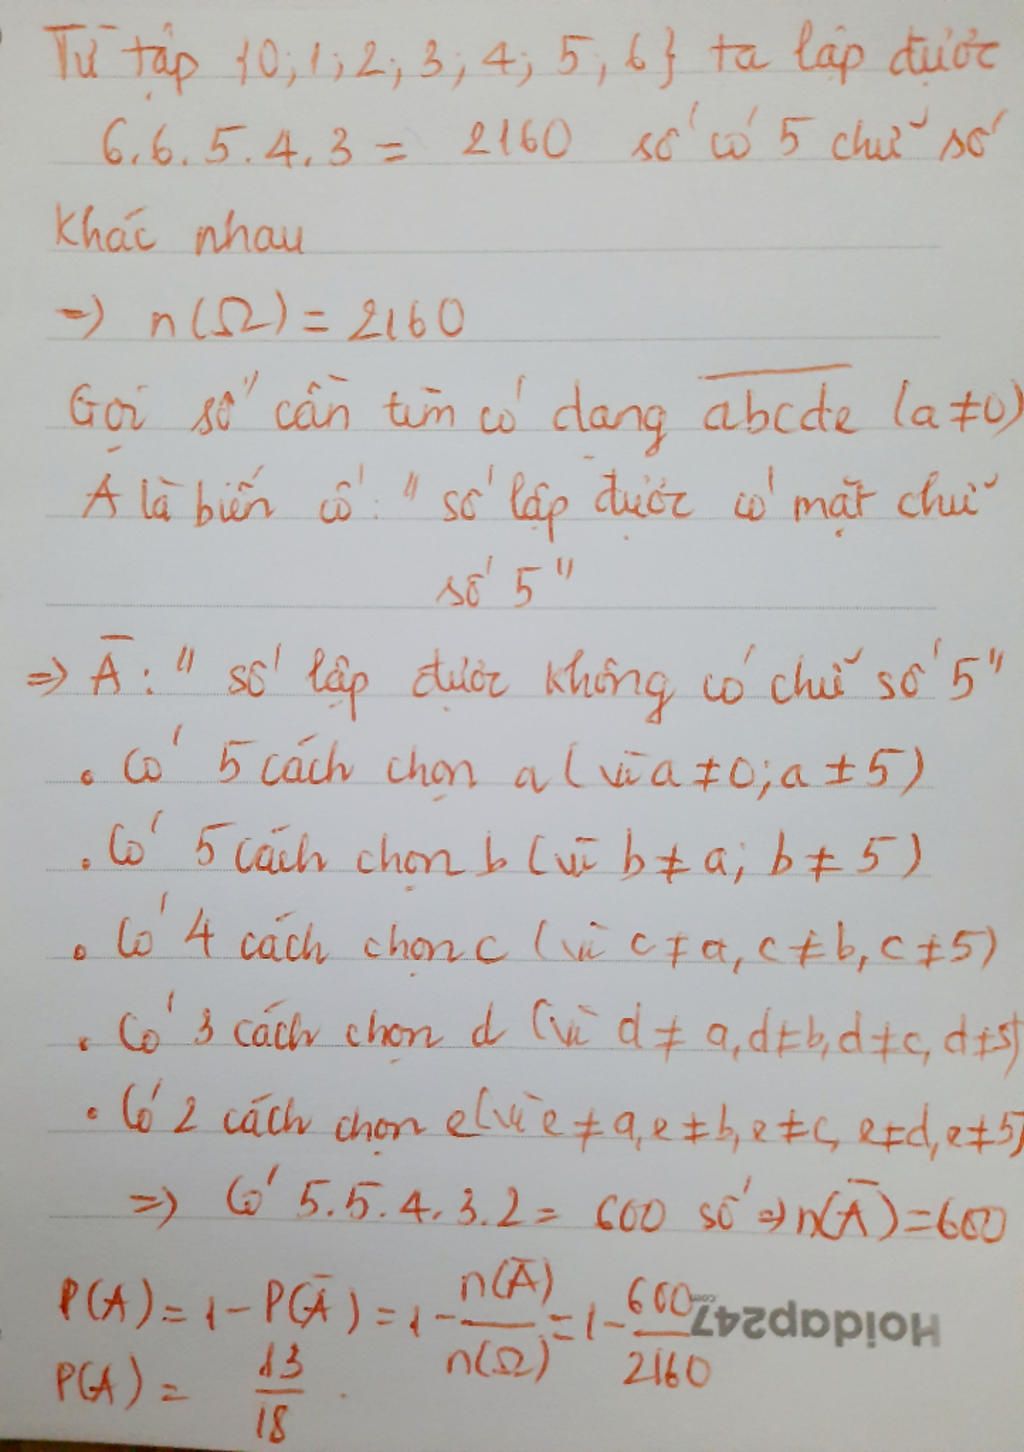 Từ tập {0; 1; 2; 3; 4; 5; 6} ta lập được
6.6.5.4.3 = 2160 số có 5 chữ số
khác nhau
=> n(Ω) = 2160
Gọi số cần tìm có dạng a̅b̅c̅d̅e̅ (a≠0)
A là biến cố: "số lập được có mặt chữ
số 5"
=> A̅: "số lập được không có chữ số 5"
. Có 5 cách chọn a (vì a≠0; a≠5)
. Có 5 cách chọn b (vì b≠a; b≠5)
. Có 4 cách chọn c (vì c≠a, c≠b, c≠5)
. Có 3 cách chọn d (vì d≠a, d≠b, d≠c, d≠5)
. Có 2 cách chọn e (vì e≠a, e≠b, e≠c, e≠d, e≠5)
=> Có 5.5.4.3.2 = 600 số => n(A̅) = 600
P(A) = 1 - P(A̅) = 1 - n(A̅)/n(Ω) = 1 - 600/2160
P(A) = 13/18.
Hoidap247.com